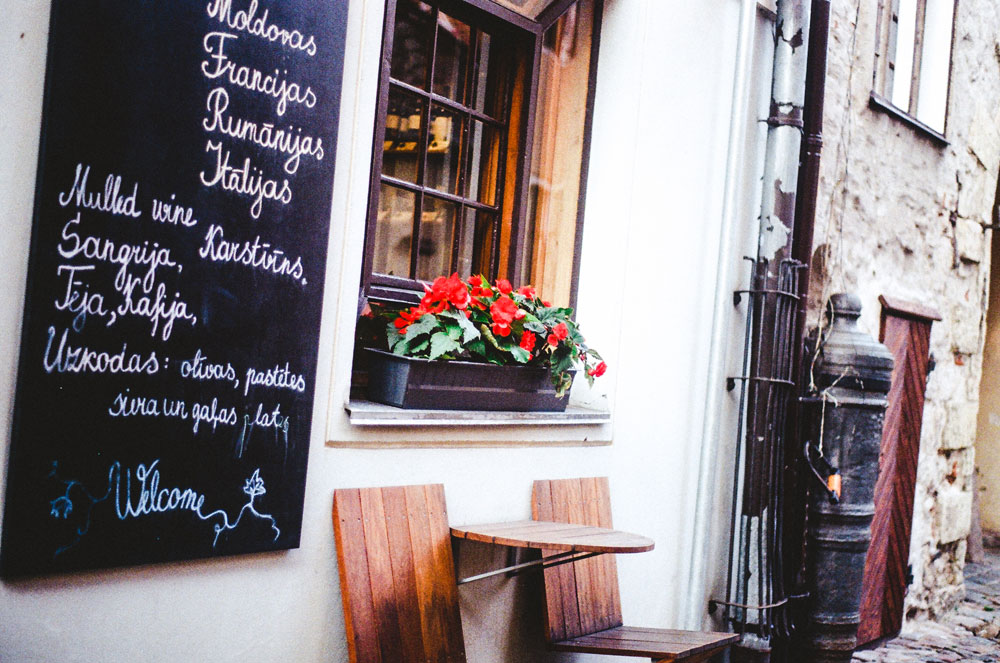 Moldovas
Francijas
Rumānijas
Itālijas
Mulled wine Karstvīns,
Sangrija,
Tēja, Kafija,
Uzkodas: olīvas, pastētes
siera un gaļas plates
Welcome